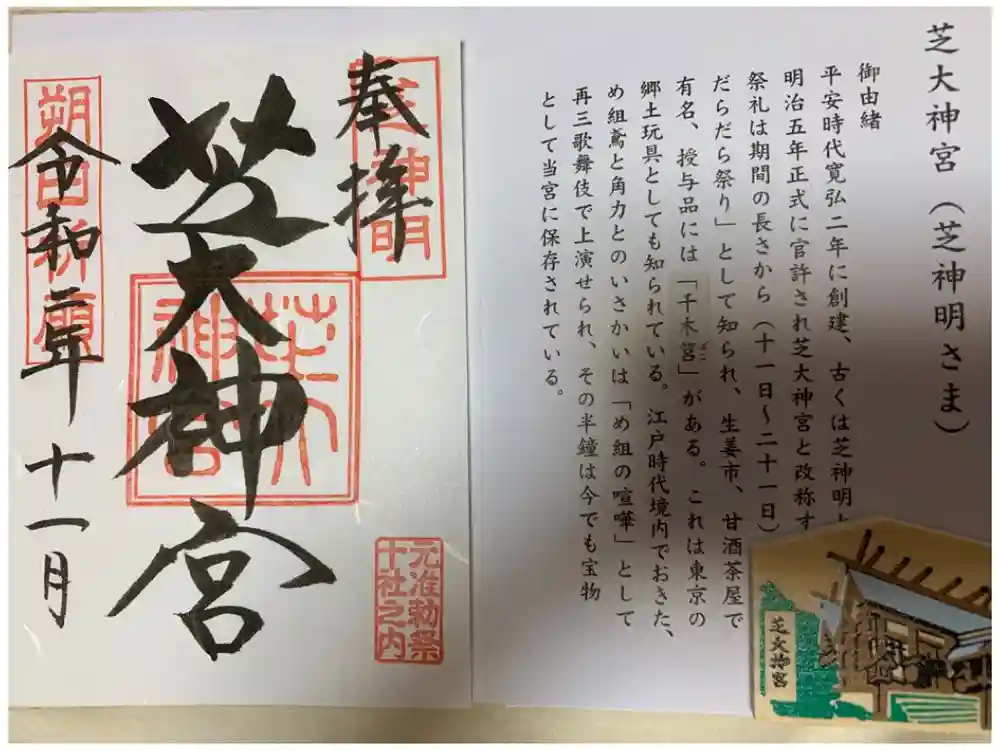 芝大神宮（芝神明さま）
御由緒
平安時代寛弘二年に創建、古くは芝神明
明治五年正式に官許され芝大神宮と改称す
祭礼は期間の長さから（十一日～二十一日）
だらだら祭り」として知られ、生姜市、甘酒茶屋で
有名、授与品には「千木筥」がある。これは東京の
郷土玩具としても知られている。江戸時代境内でおきた、
め組鳶と角力とのいさかいは「め組の喧嘩」として
再三歌舞伎で上演せられ、その半鐘は今でも宝物
として当宮に保存されている。
芝大神宮
奉拝
芝神明
芝大神宮
元准勅祭
十社之内
朔日祈
令和二年十一月